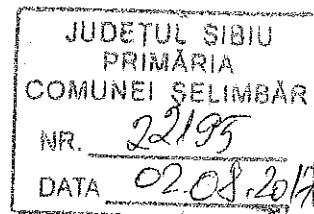 JUDEȚUL SIBIU
PRIMĂRIA
COMUNEI ȘELIMBĂR
NR. 22195
DATA 02.08.2017